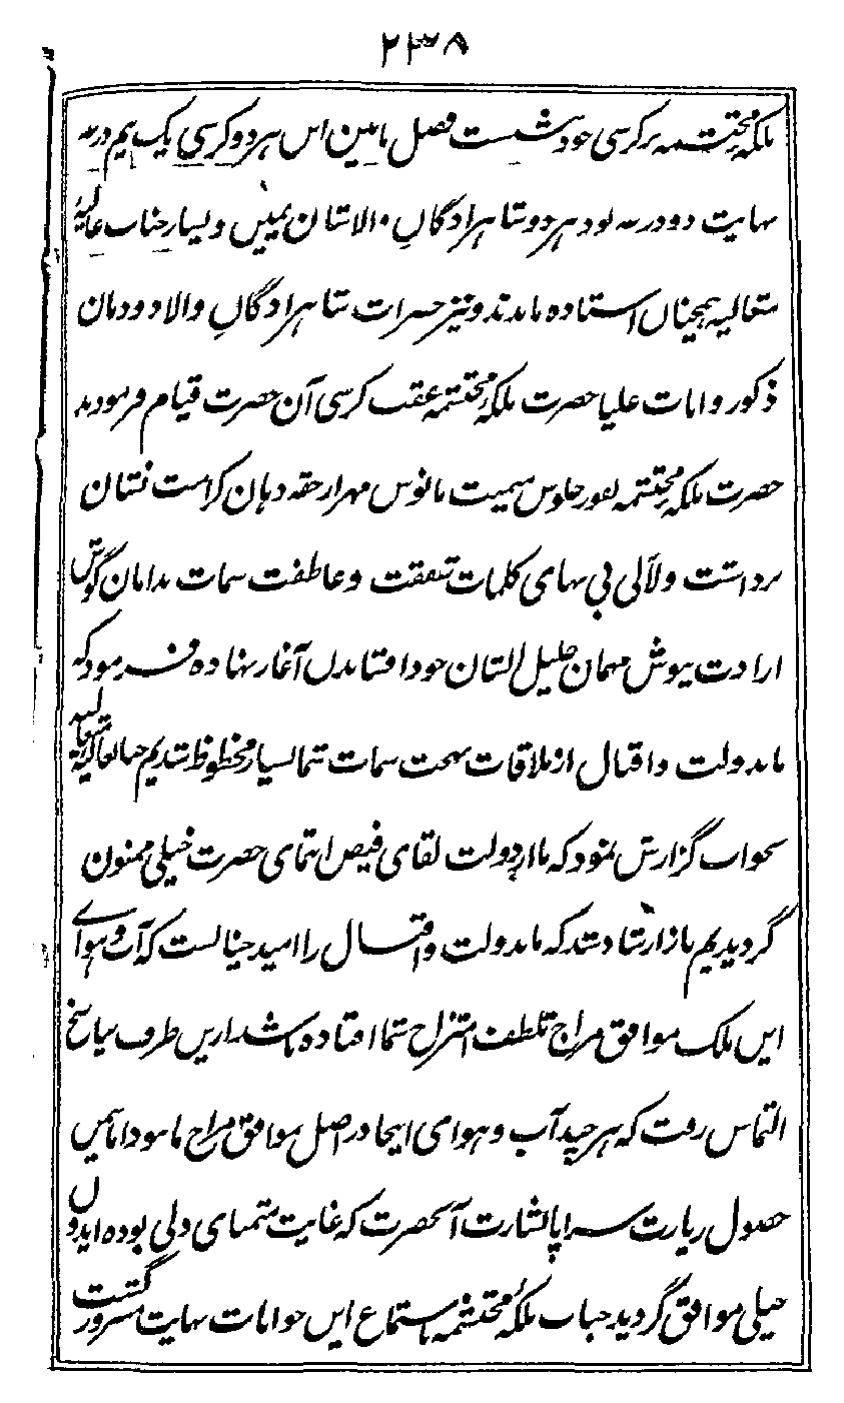 ۲۳۸
ملکهٔ محتشمه بر کرسی خود نشست فصل مابین این هر دو کرسی یک نیم درعه
نهایت دو درعه بود هر دو شاهزادگان والاشان یمین و یسار جناب عالیه
متعالیه همچنان استاده ماندند و نیز حضرات شاهزادگان والا دودمان
ذکور و اناث علیا حضرت ملکهٔ محتشمه عقب کرسی آن حضرت قیام فرمودند
حضرت ملکهٔ محتشمه بفور جلوس میمنت مانوس مهر از حقه دهان کرامت نشان
برداشت و لآلی بی بهای کلمات شفقت و عاطفت سمات بدامان گوش
ارادت نیوش مهمان جلیل الشان خود افشاندن آغاز نهاده فرمود که
مابدولت و اقبال از ملاقات بهجت سمات شما بسیار محظوظ شدیم جناب عالیه متعالیه
بجواب گزارش نمود که ما از دولت لقای فیض انتمای حضرت خیلی ممنون
گردیدیم باز ارشاد شد که مابدولت و اقبال را امید چنانست که آب و هوای
این ملک موافق مزاج تلطف امتزاج شما افتاده باشد ازین طرف بپاسخ
التماس رفت که هر چند آب و هوای اینجا در اصل موافق مزاج ما نبود اما بمین
حصول زیارت سراپا بشارت آنحضرت که غایت متمنای دلی بوده ایدون
خیلی موافق گردید جناب ملکهٔ محتشمه باستماع این جوابات نهایت مسرور گشت